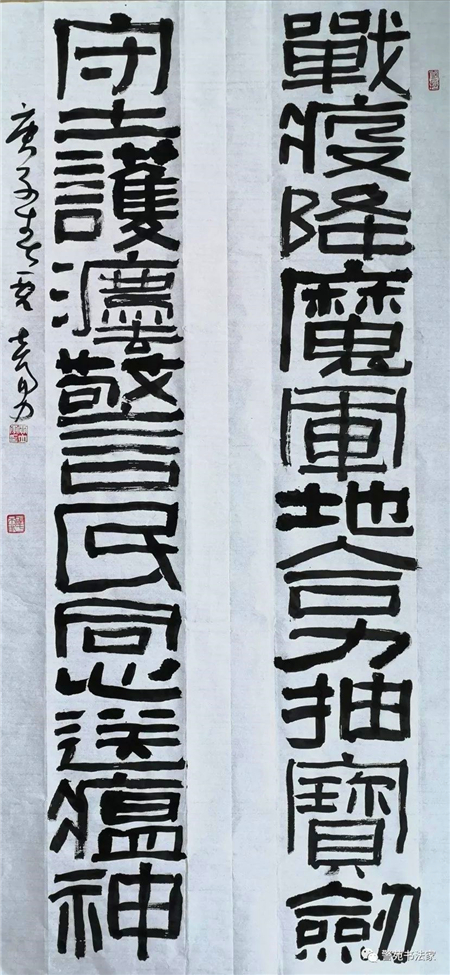 戰疫降魔軍地合力抽寶劍
守土護灋警民同心送瘟神
庚子春 志勇
警苑书法家